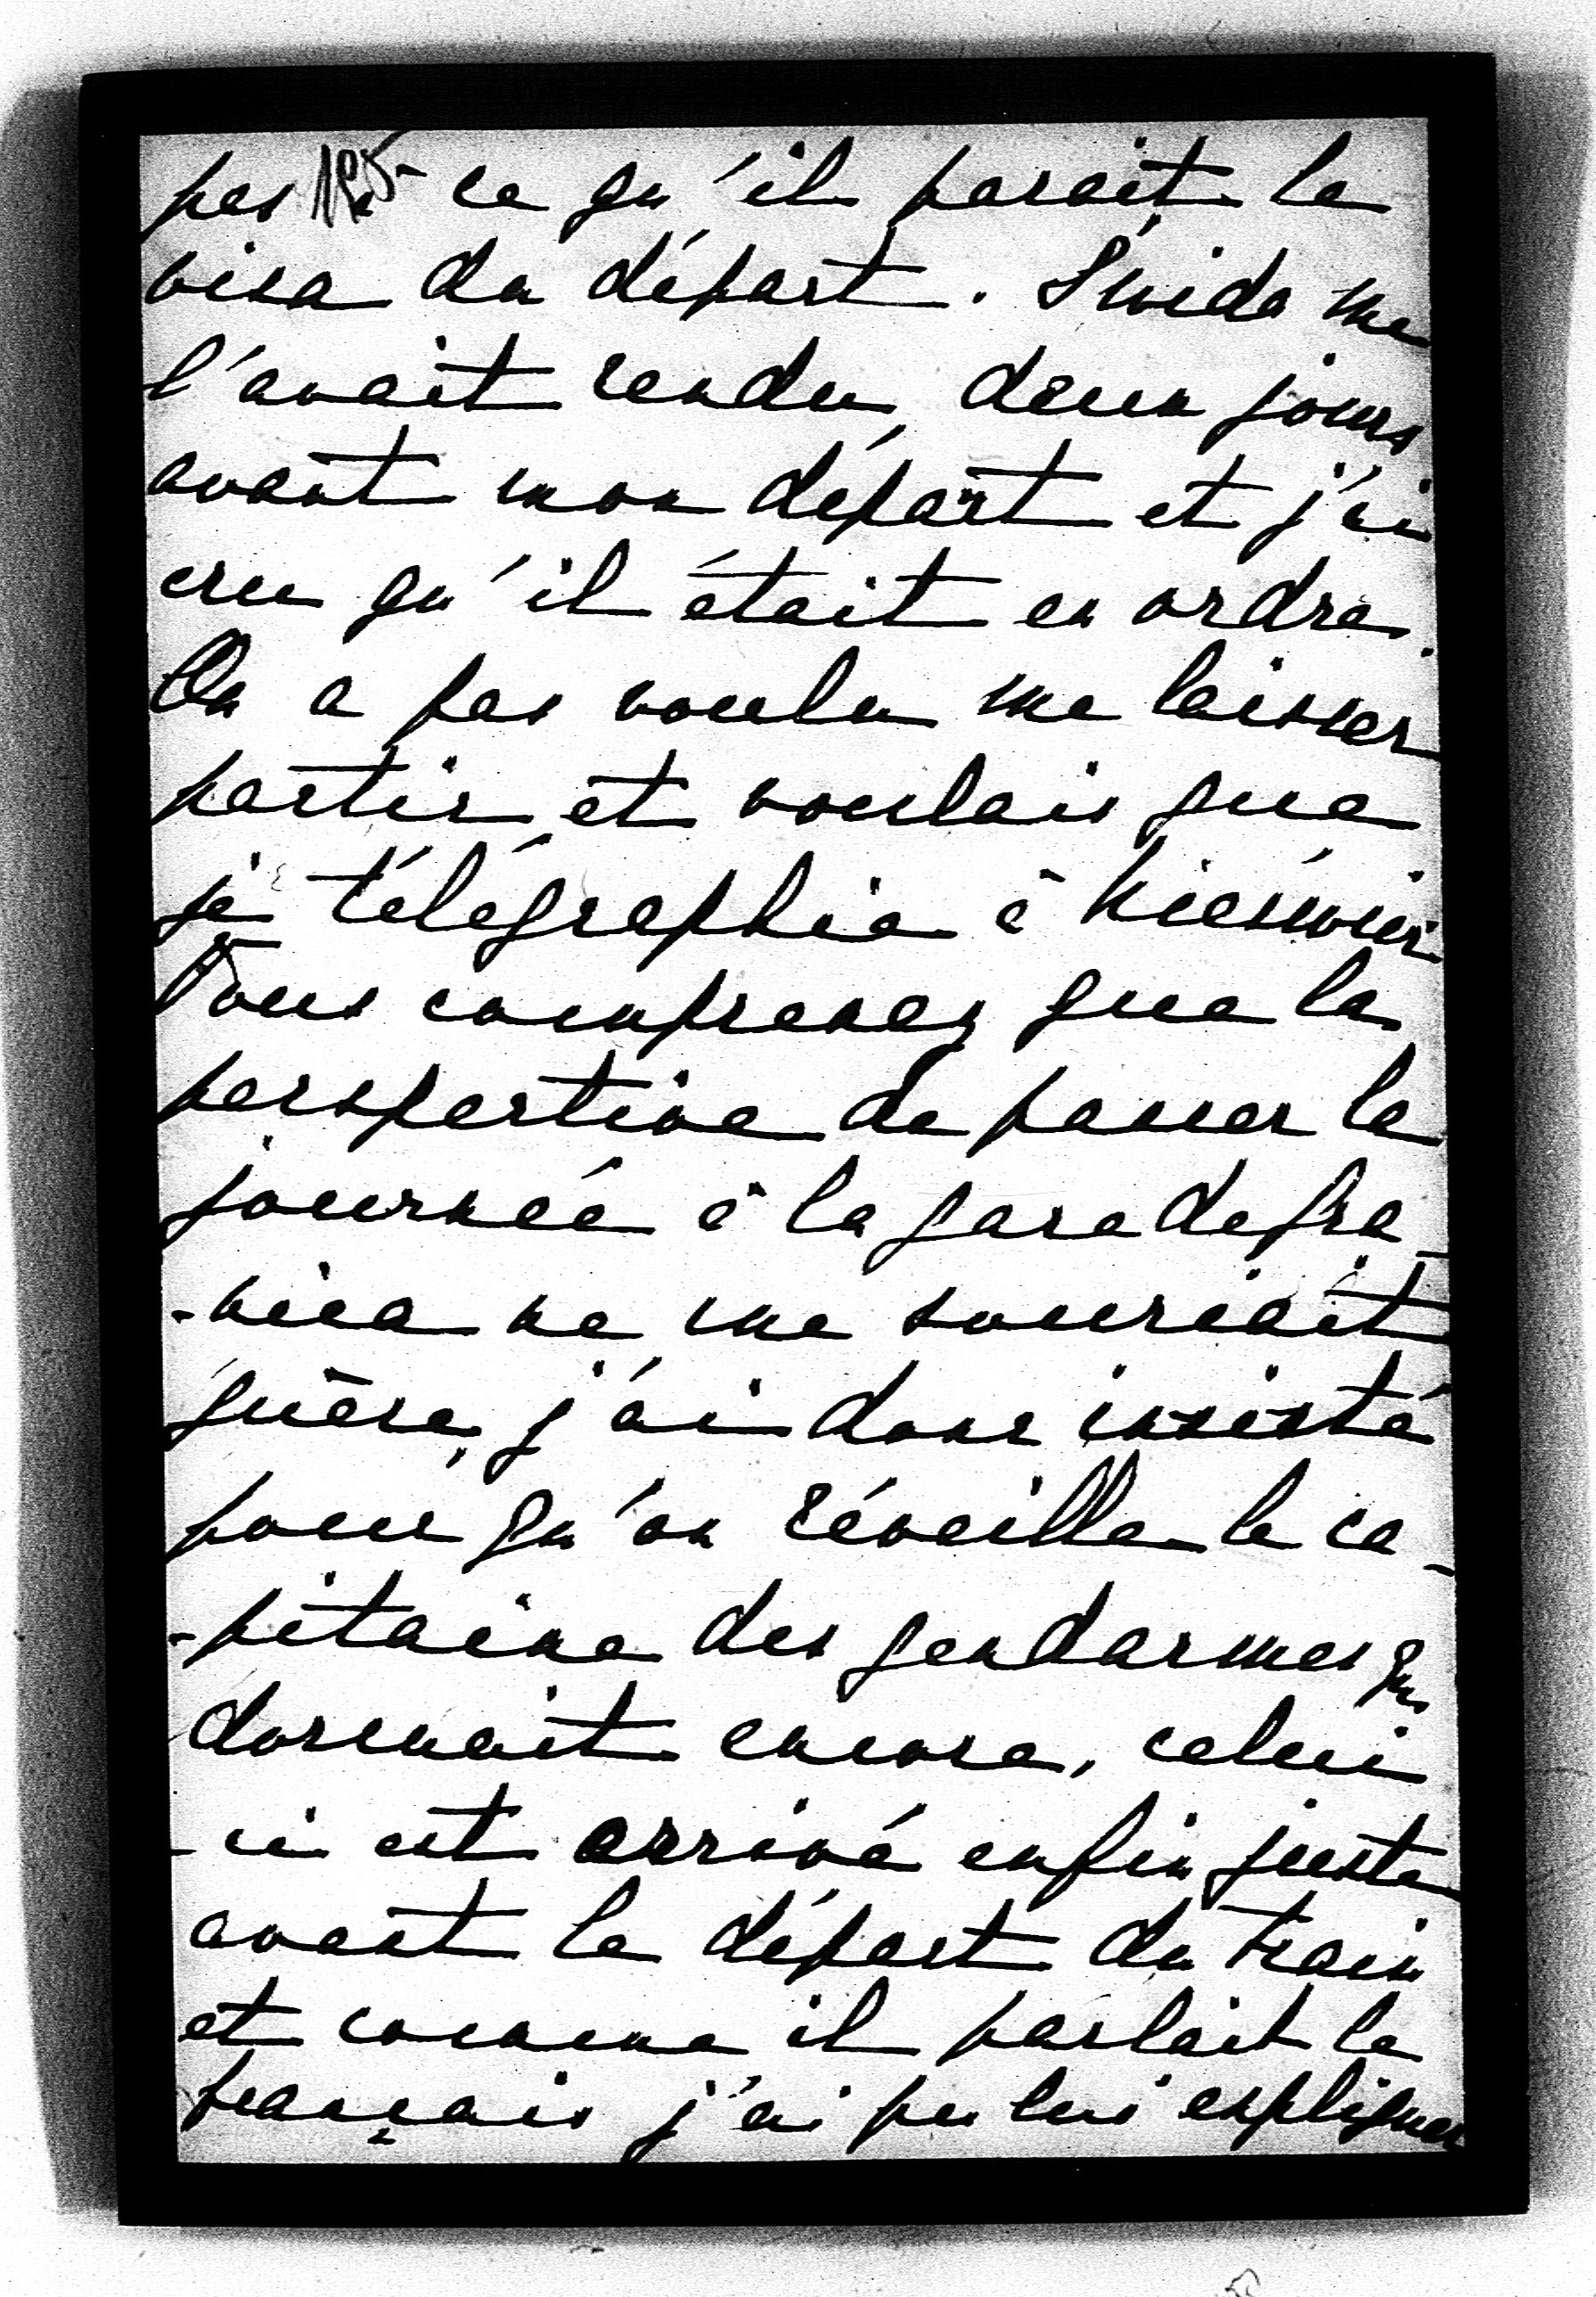 pas 125 à ce qu'il parait le
visa du départ. Swida me
l'avait rendu, deux jours
avant mon départ et j'ai
cru qu'il était en ordre.
On a pas voulu me laisser
partir, et voulais que
je télégraphie à
Vous comprenez que la
perspective de passer la
journée à la gare de Gra-
-nica ne me souriait
guère, j'ai donc insisté
pour qu'on réveille le ca-
-pitaine des gendarmes qui
dormait encore, celui
-ci est arrivé enfin juste
avant le départ du train
et comme il parlait le
français j'ai pu lui expliquer